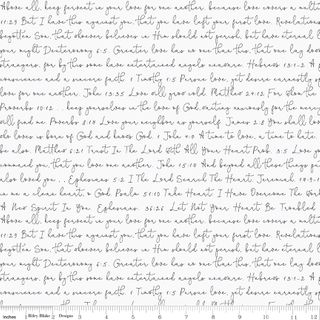 Above all, keep fervent in your love for one another, because love covers a multit
11:23 But I have this against you, that you have left your first love. Revelations
begotten Son, that whoever believes in Him should not perish, but have eternal l
your might Deuteronomy 6:5 Greater love has no one than this, that one lay down
strangers, for by this some have entertained angels unawares. Hebrews 13:1-2 A
conscience and a sincere faith. 1 Timothy 1:5 Pursue love, yet desire earnestly s
love for one another. John 13:35 Love will grow cold. Matthew 24:12 For
Proverbs 10:12 keep yourselves in the love of God, waiting anxiously for the mercy
will find me Proverbs 8:17 Love your neighbor as yourself. James 2:8 You shall lov
who loves is born of God and knows God. 1 John 4:7 A time to love, a time to hate.
be also. Matthew 6:21 Trust In The Lord With All Your Heart Prob. 3:5 Love
command you, that you love one another. John 15:17 And beyond all these things
also loved you Ephesians 5:2 I The Lord Search The Heart Jeremiah
in me a clean heart, o God Psalm 51:10 Take Heart, I Have Overcome The Wor
A New Spirit In You. 36:26 Let Not Your Heart Be Troubled
Above all, keep fervent in your love for one another, because love covers a multit
11:23 But I have this against you, that you have left your first love. Revelations
begotten Son, that whoever believes in Him should not perish, but have eternal l
your might Deuteronomy 6:5 Greater love has no one than this, that one lay down
strangers, for by this some have entertained angels unawares. Hebrews 13:1-2 A
conscience and a sincere faith. 1 Timothy 1:5 Pursue love, yet desire earnestly
inches Riley Blake Designs 1 2 3 4 5 6 7 8 9 10 11 12